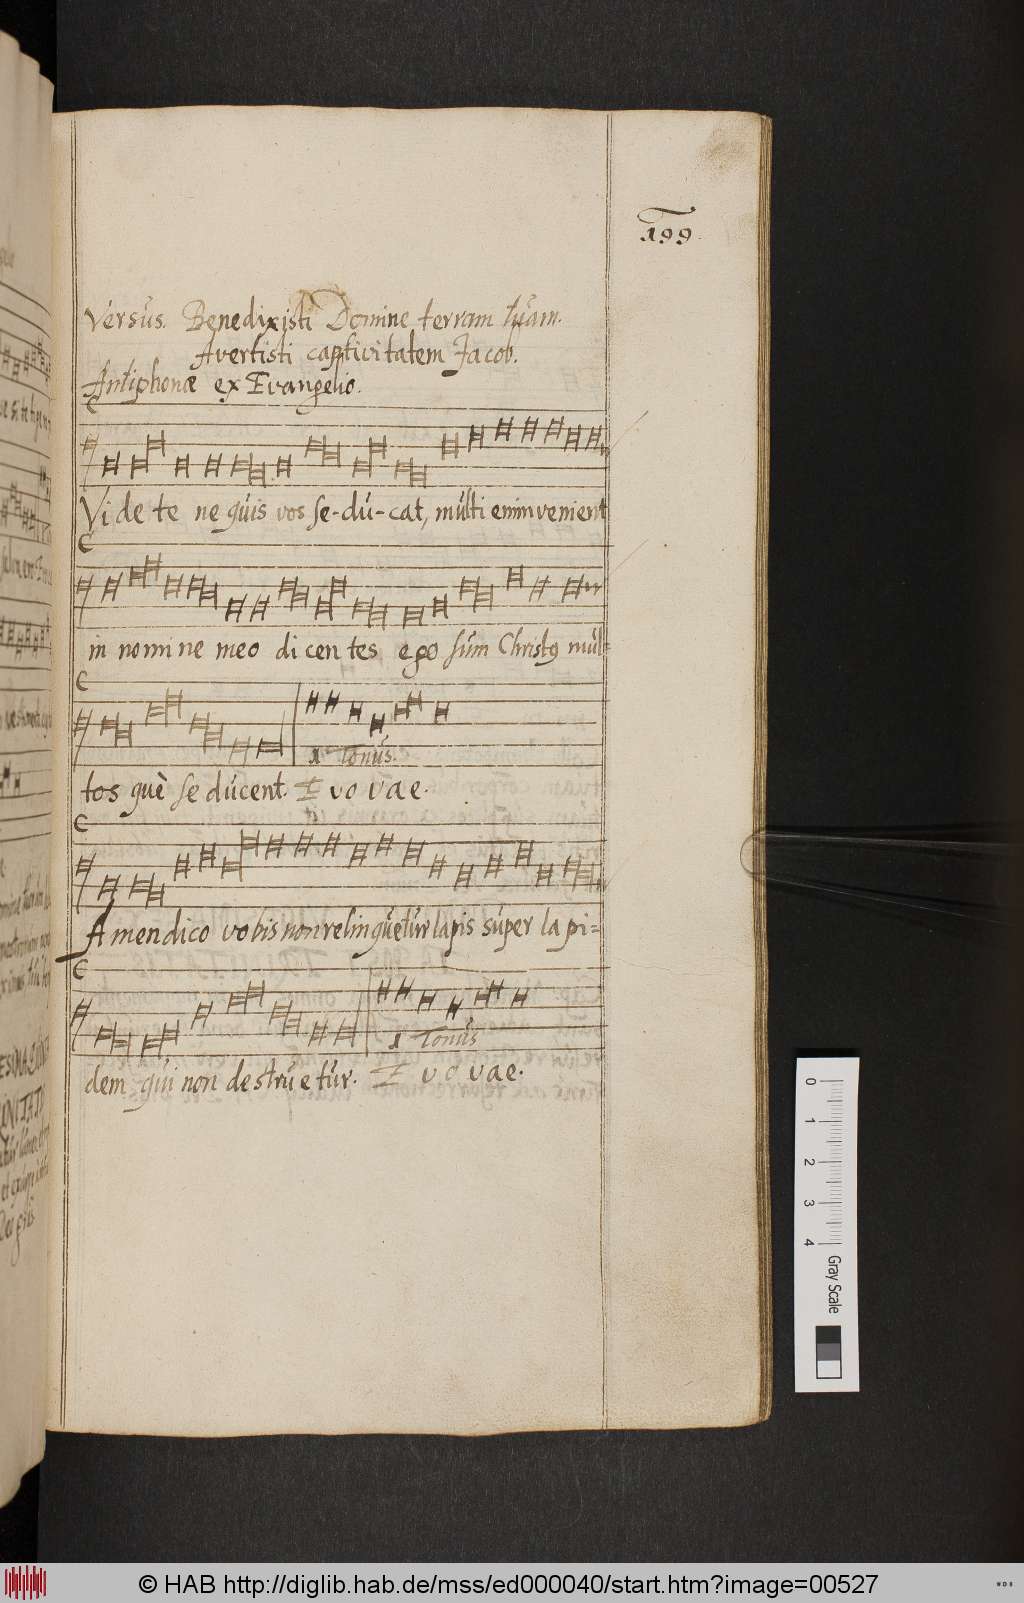 199.
Versus. Benedixisti Domine terram tuam.
Avertisti captivitatem Jacob.
Antiphonæ ex Evangelio.
Vi de te ne quis vos se-du-cat, multi enim venient
in nomine meo dicentes ego sum Christus mul-
tos què seducent. E v o v a e.
1 Tonus.
Amen dico vobis non relinquetur lapis super lapi=
dem qui non destruetur. E v o v a e.
1 Tonus
0 1 2 3 4 Gray Scale
© HAB http://diglib.hab.de/mss/ed000040/start.htm?image=00527